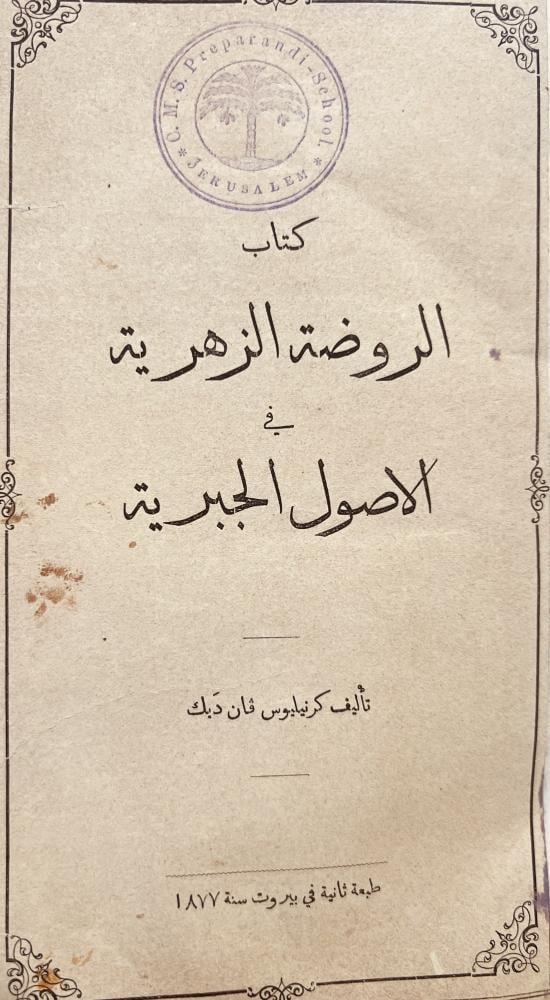 C. M. S. Preparandi-School.
* JERUSALEM *
كتاب
الروضة الزهرية
في
الاصول الجبرية
تأليف كرنيليوس ڤان دَيك
طبعة ثانية في بيروت سنة ١٨٧٧